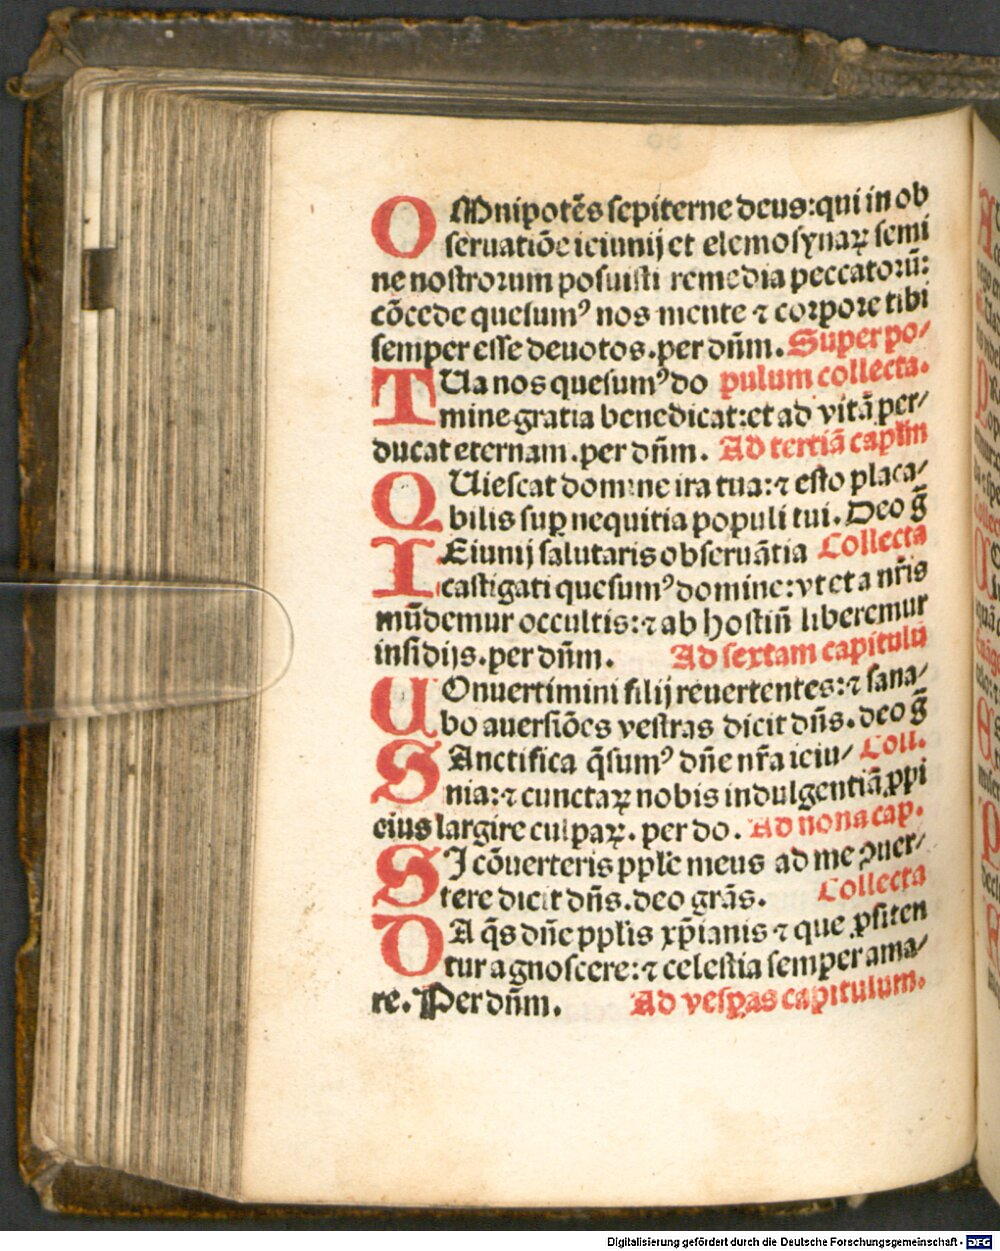 OMnipotēs sepiterne deus:qui in ob
seruatiōe ieiunij et elemosynaꝝ semi
ne nostrorum posuisti remedia peccatorū:
cōcede quesumꝰ nos mente ⁊ corpore tibi
semper esse deuotos.per dn̄m. Super po/
TUa nos quesumꝰ do pulum collecta.
mine gratia benedicat:et ad vitā per/
ducat eternam.per dn̄m. Ad tertiā caplm̄
QUiescat domine ira tua:⁊ esto placa/
bilis suꝑ nequitia populi tui. Deo ḡ
IEiunij salutaris obseruātia Collecta
castigati quesumꝰ domine:vt et a nr̄is
mūdemur occultis:⁊ ab hostiū liberemur
insidijs.per dn̄m. Ad sextam capitulū
COnuertimini filij reuertentes:⁊ sana/
bo auersiōes vestras dicit dn̄s. deo ḡ
SAnctifica q̄sumꝰ dn̄e nr̄a ieiu/ Coll.
nia:⁊ cunctaꝝ nobis indulgentiā ꝓpi
cius largire culpaꝝ. per do. Ad nona cap.
SI cōuerteris pple meus ad me ꝯuer/
tere dicit dn̄s.deo grās. Collecta
DA q̄s dn̄e pplis xp̄ianis ⁊ que ꝓfiten
tur agnoscere:⁊ celestia semper ama/
re. Per dn̄m. Ad vesꝑas capitulum.
Digitalisierung gefördert durch die Deutsche Forschungsgemeinschaft - DFG